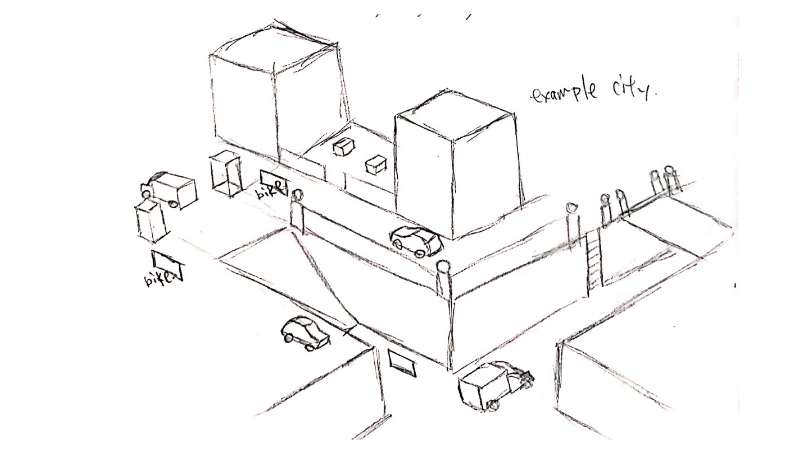 example city.
bike
bike